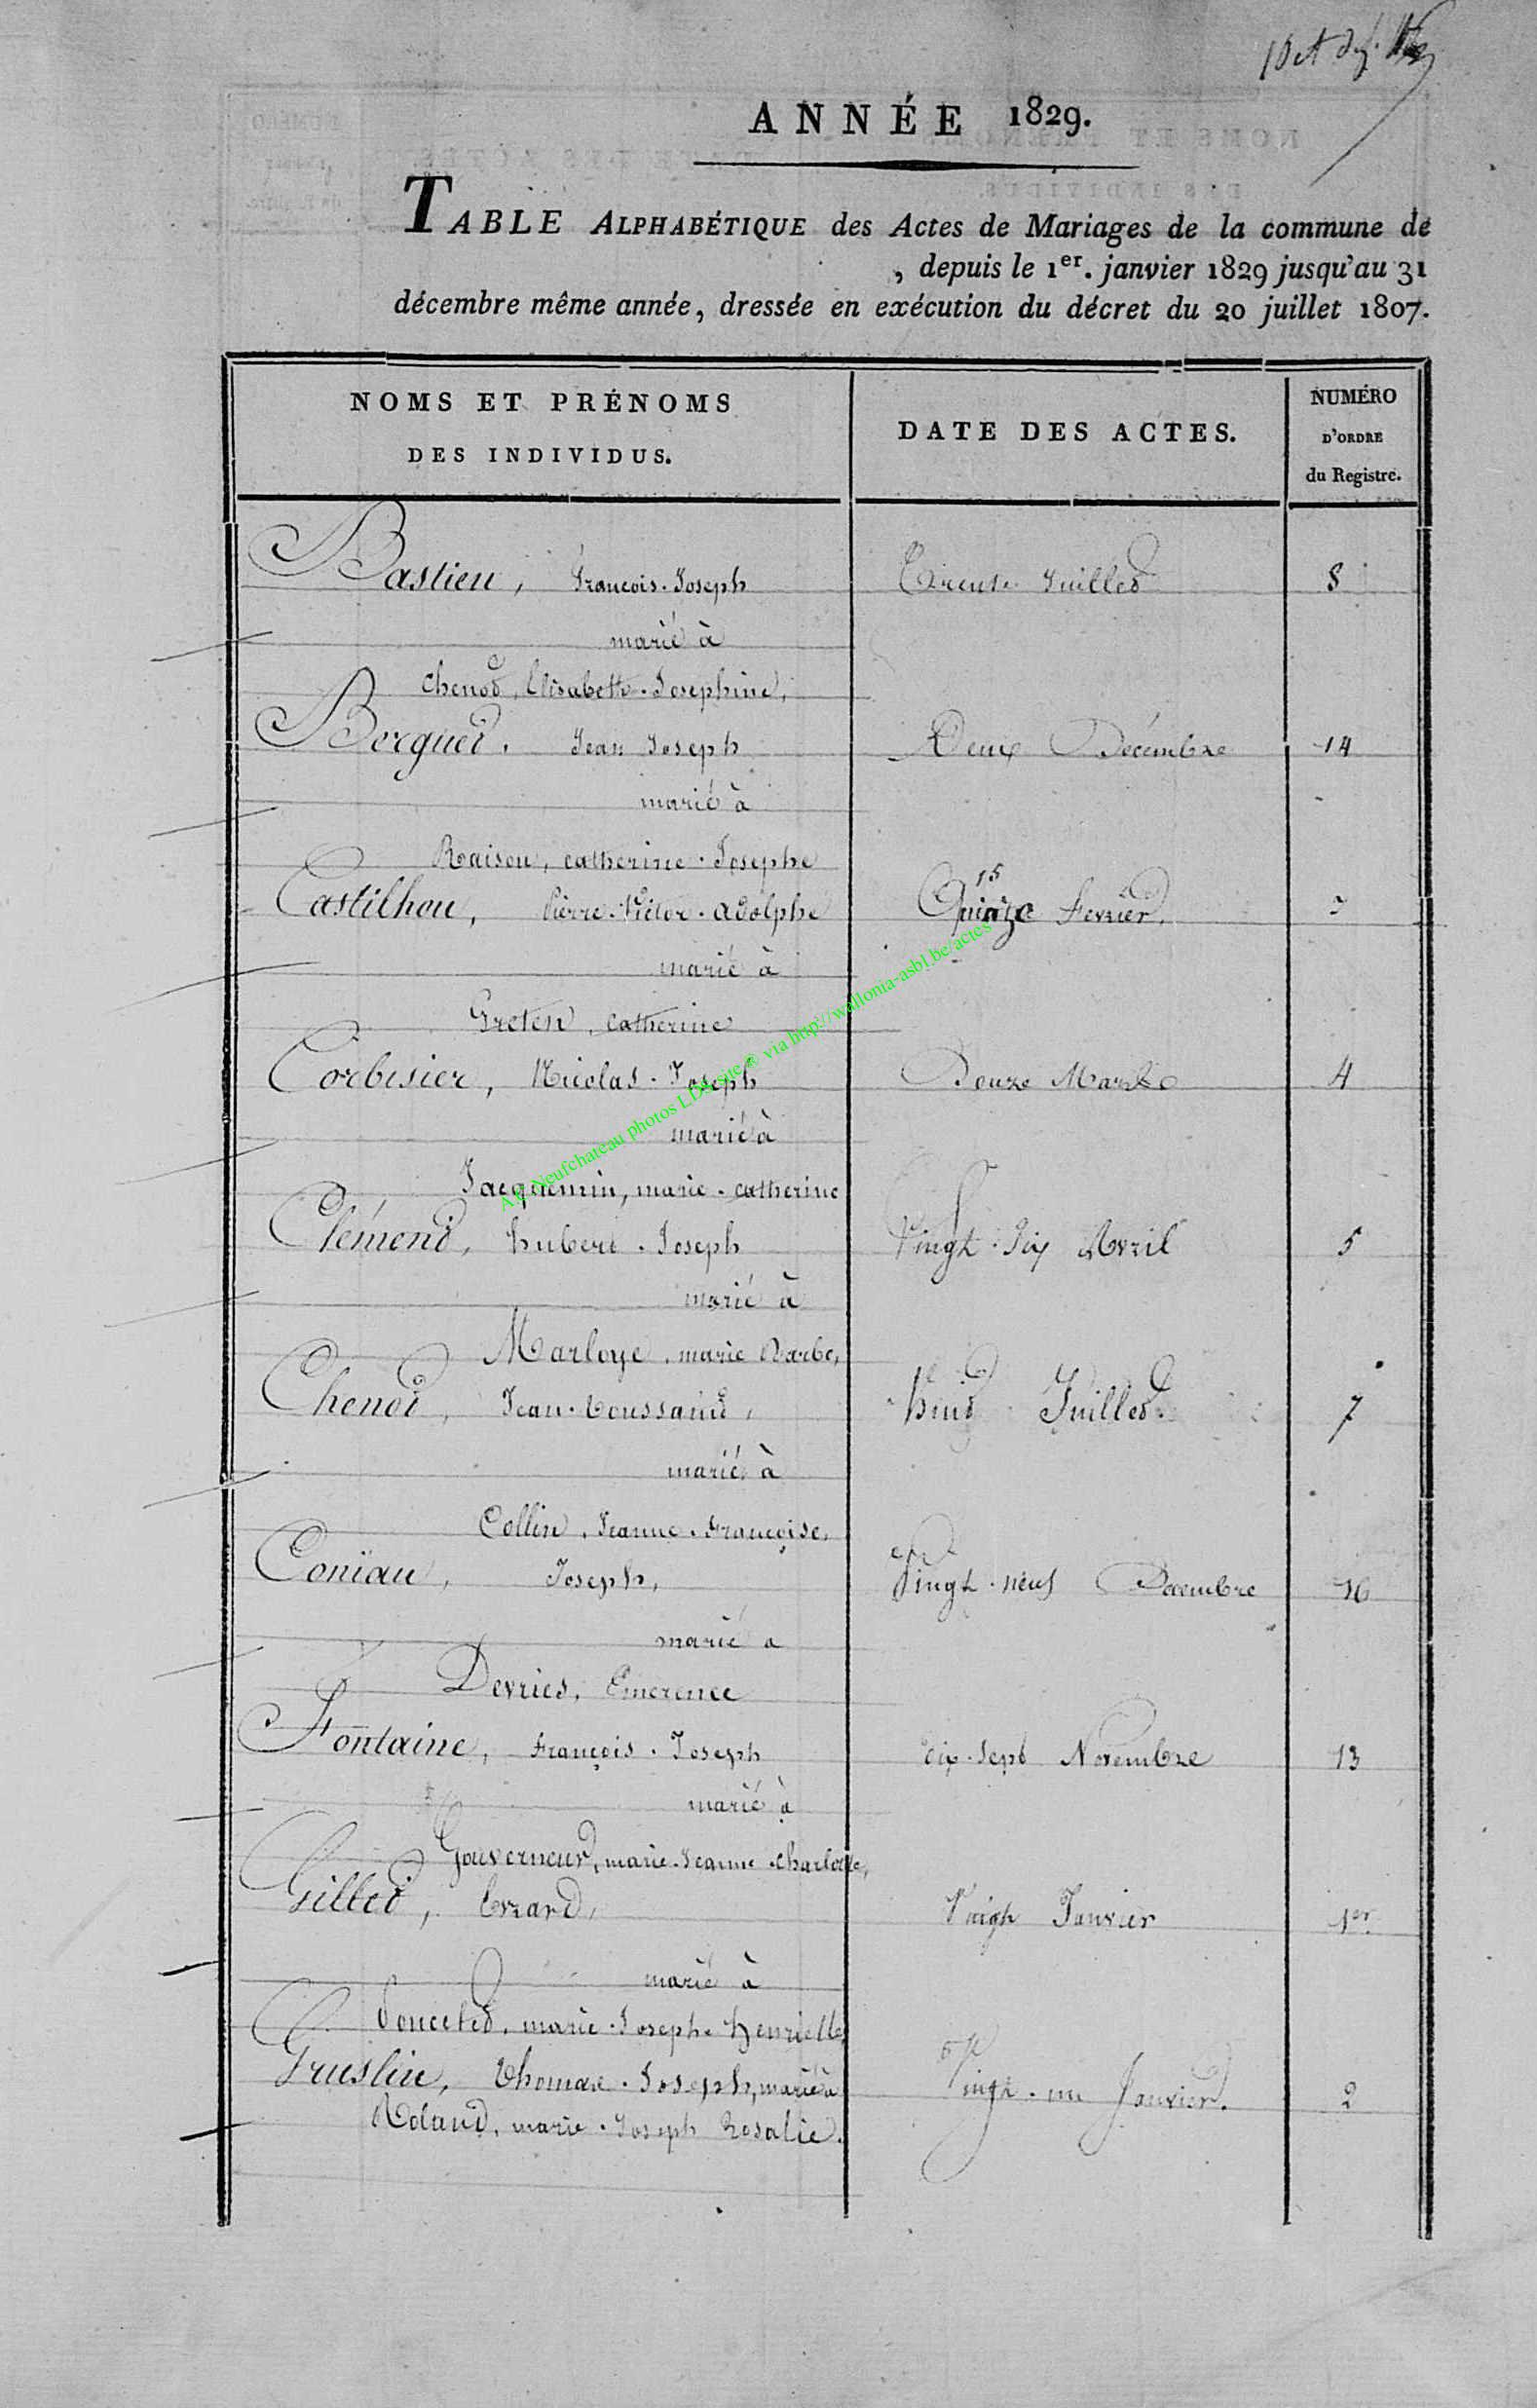 ANNÉE 1829.
TABLE ALPHABÉTIQUE des Actes de Mariages de la commune de
, depuis le 1er. janvier 1829 jusqu'au 31
décembre même année, dressée en exécution du décret du 20 juillet 1807.
NOMS ET PRÉNOMS
DES INDIVIDUS.
DATE DES ACTES.
NUMÉRO
D'ORDRE
du Registre.
Bastien, François. Joseph Treuse Juillet 8
marié à
Chenot, Elisabeth. Josephine,
Berguet. Jean Joseph Deux Décembre 14
marié à
Raison, catherine. Josephe
15
Castilhon, Pierre. Victor. adolphe Quinze Fevrier, 3
marié à
Greten, catherine
Corbisier, Nicolas. Joseph Douze Mars 4
marié à
Jacquemin, marie. catherine
Clément, hubert. Joseph Vingt. Six Avril 5
marié à
Marloye, marie Barbe,
Chenot, Jean. Toussaint, huit Juillet. 7
marié à
Collin, Jeanne. Françoise,
Coniau, Joseph, Vingt. neuf Decembre 16
marié a
Devries, Emerence
Fontaine, François. Joseph dix. sept Novembre 13
marié à
Gouverneur, marie. Jeanne. charlotte,
Gillet, Evrard, Vingt Janvier 1er.
marié à
Poncelet, marie. Josephe Henriette,
Gruslin, Thomas. Joseph, marié à Vingt. un Janvier. 2
Roland, marie. Joseph Rosalie.
A.E. Neufchateau photos LDS site ® via http://wallonia-asbl.be/actes